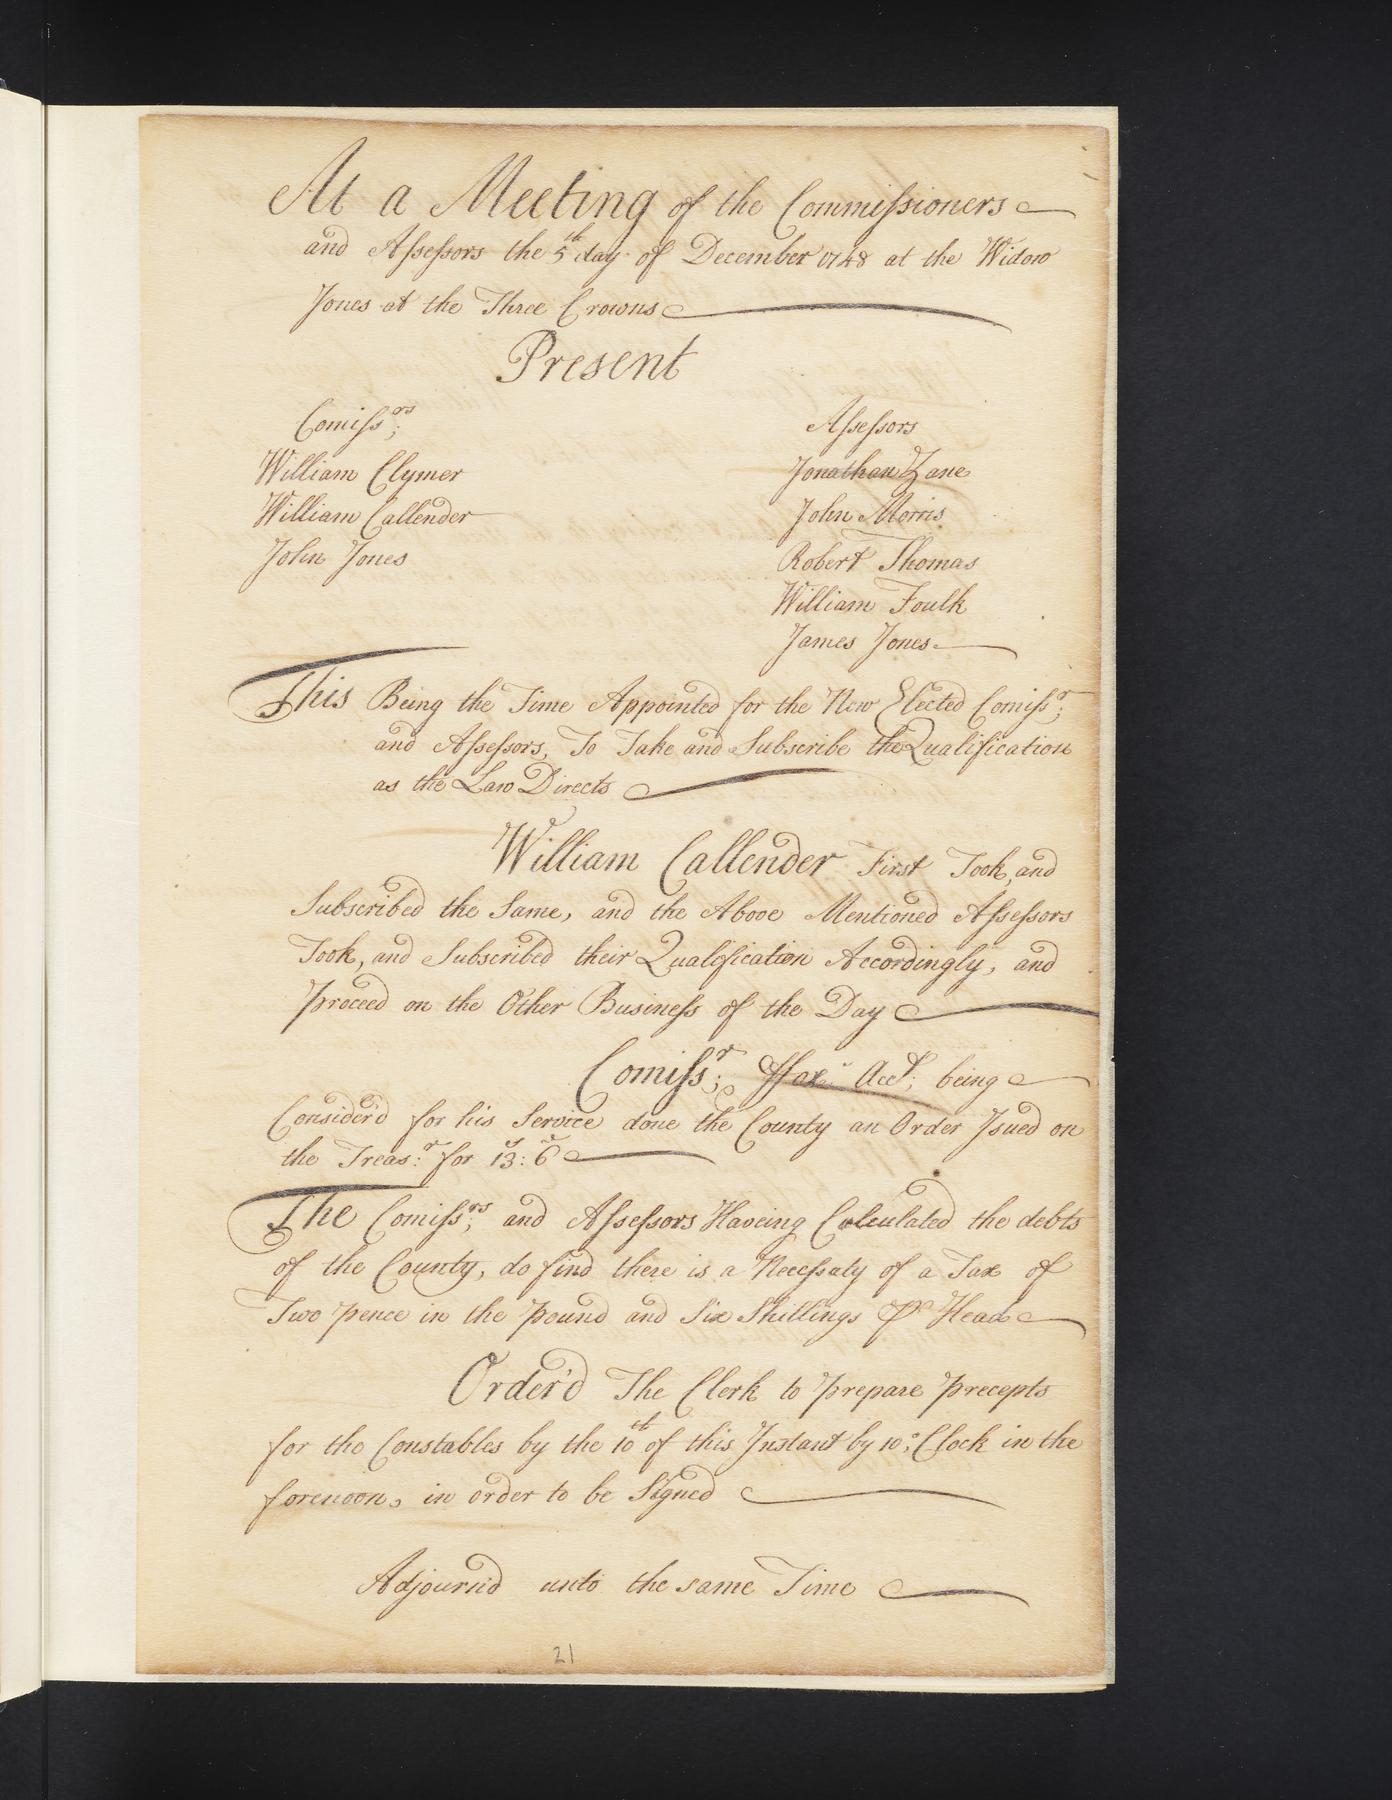 At a Meeting of the Commissioners
and Assessors the 5th day of December 1748 at the Widow
Jones at the Three Crowns
Present
Comissrs;
Assessors
William Clymer
Jonathan Zane
William Callender
John Morris
John Jones
Robert Thomas
William Foulk
James Jones
This Being the Time Appointed for the New Elected Comissr;
and Assessors, To Take and Subscribe the Qualification
as the Law Directs
William Callender First Took, and
Subscribed the Same, and the Above Mentioned Assessors
Took, and Subscribed their Qualification Accordingly, and
Proceed on the Other Business of the Day
Comissr; ffox Acct; being
Consider'd for his Service done the County an Order Isued on
the Treas:r for 13s: 6d
The Comissrs; and Assessors Haveing Calculated the debts
of the County, do find there is a Necessaty of a Tax of
Two pence in the pound and Six Shillings Pr Head
Order'd The Clerk to prepare precepts
for the Constables by the 10th of this Instant by 10 o; Clock in the
forenoon, in order to be Signed
Adjourn'd unto the same Time
21